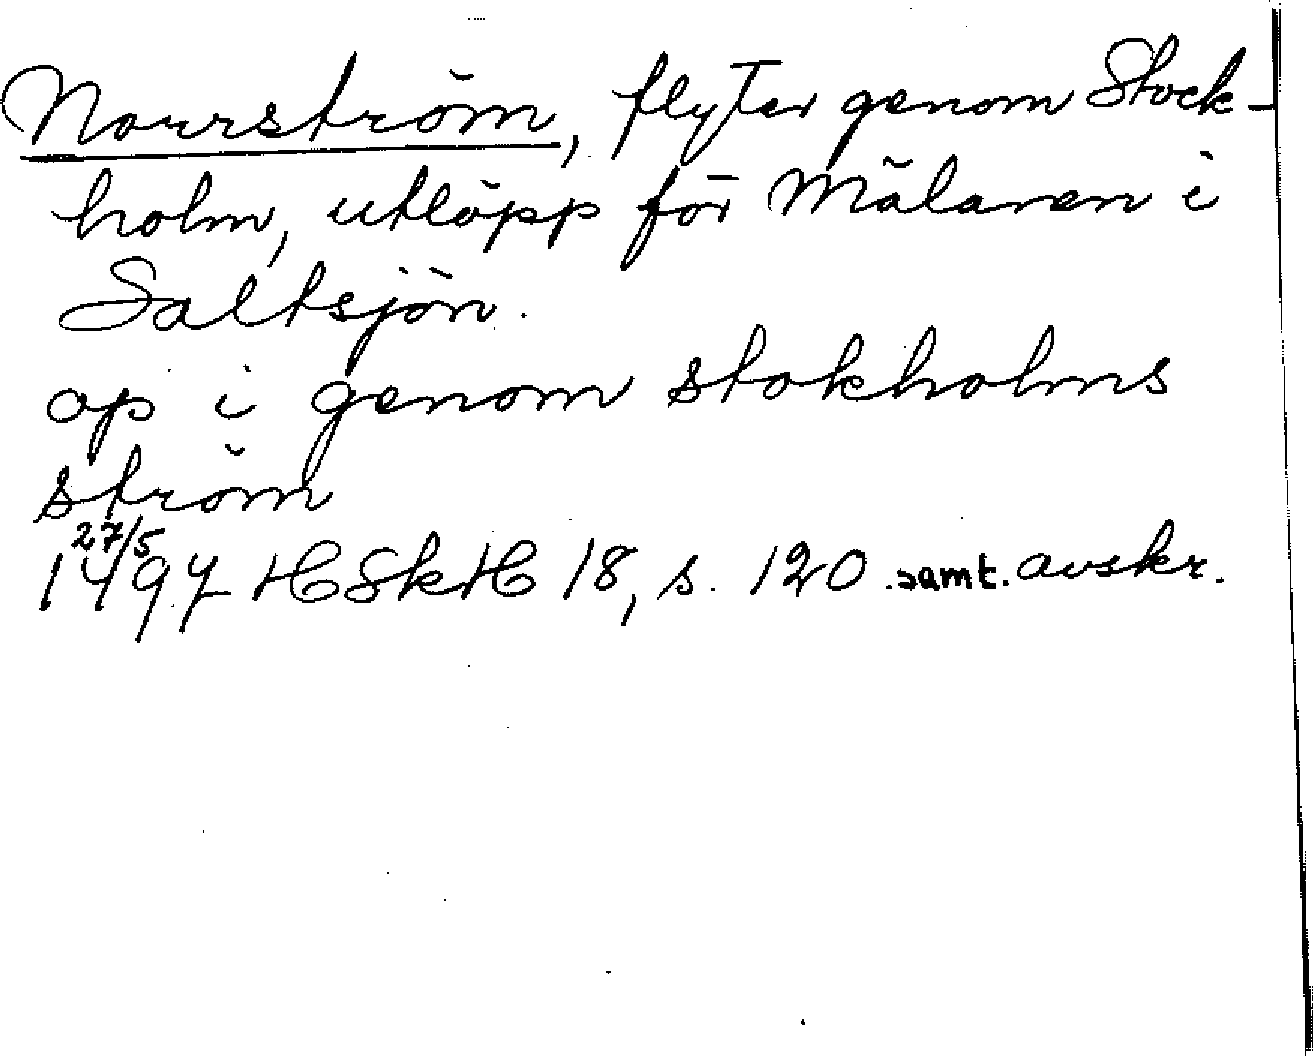 Norrström, flyter genom Stock-
holm, utlöpp för Mälaren i
Saltsjön.
op i genom stokholms
ström
27/5
1497 HSkH 18, s. 120 samt. avskr.